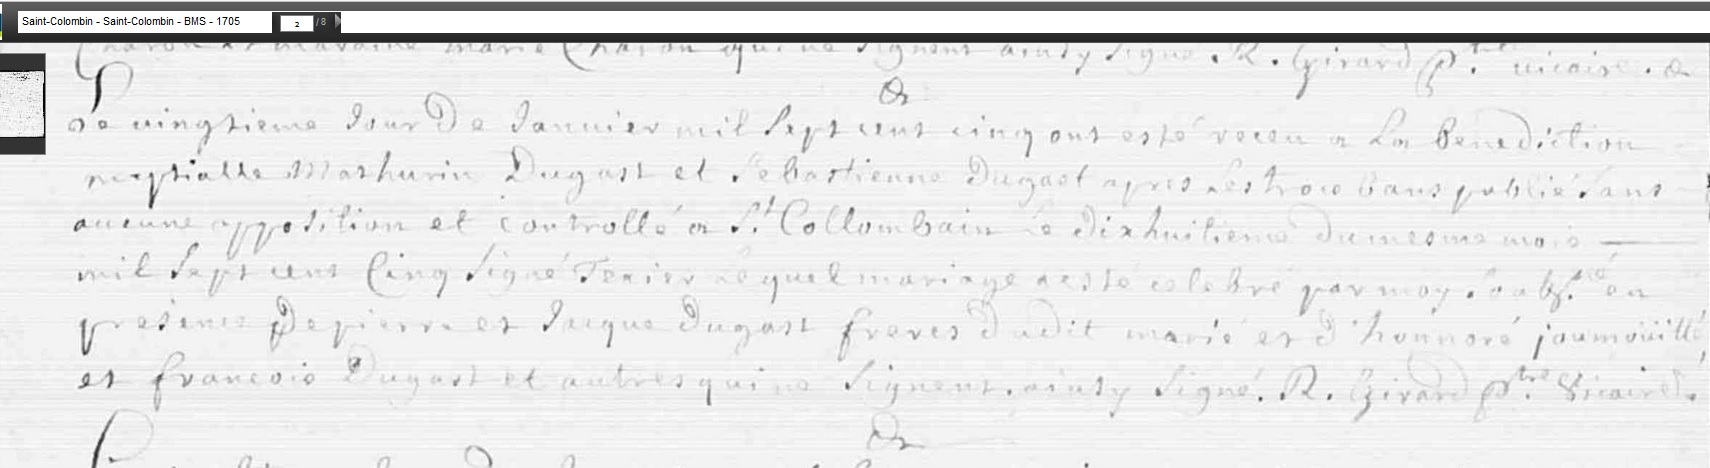 Saint-Colombin - Saint-Colombin - BMS - 1705
2 / 8
Charon marie Charon qui ne signent ainsy signé. R. Girard ptre vicaire. &
&
Le vingtieme Jour De Januier mil sept cent cinq ont esté receu a La benediction
neuptialle Mathurin Dugast et Sebastienne Dugast apres Les trois bans publié sans
aucune opposition et controllé a St Collombain le dixhuitieme du mesme mois
mil sept cent Cinq signé Texier Lequel mariage a esté celebré par moy soubs. en
presence De pierre et Jacque Dugast freres dudit marié et d'honnoré
et francois Dugast et autres qui ne signent. ainsy signé. R. Girard ptre Vicaire.
&